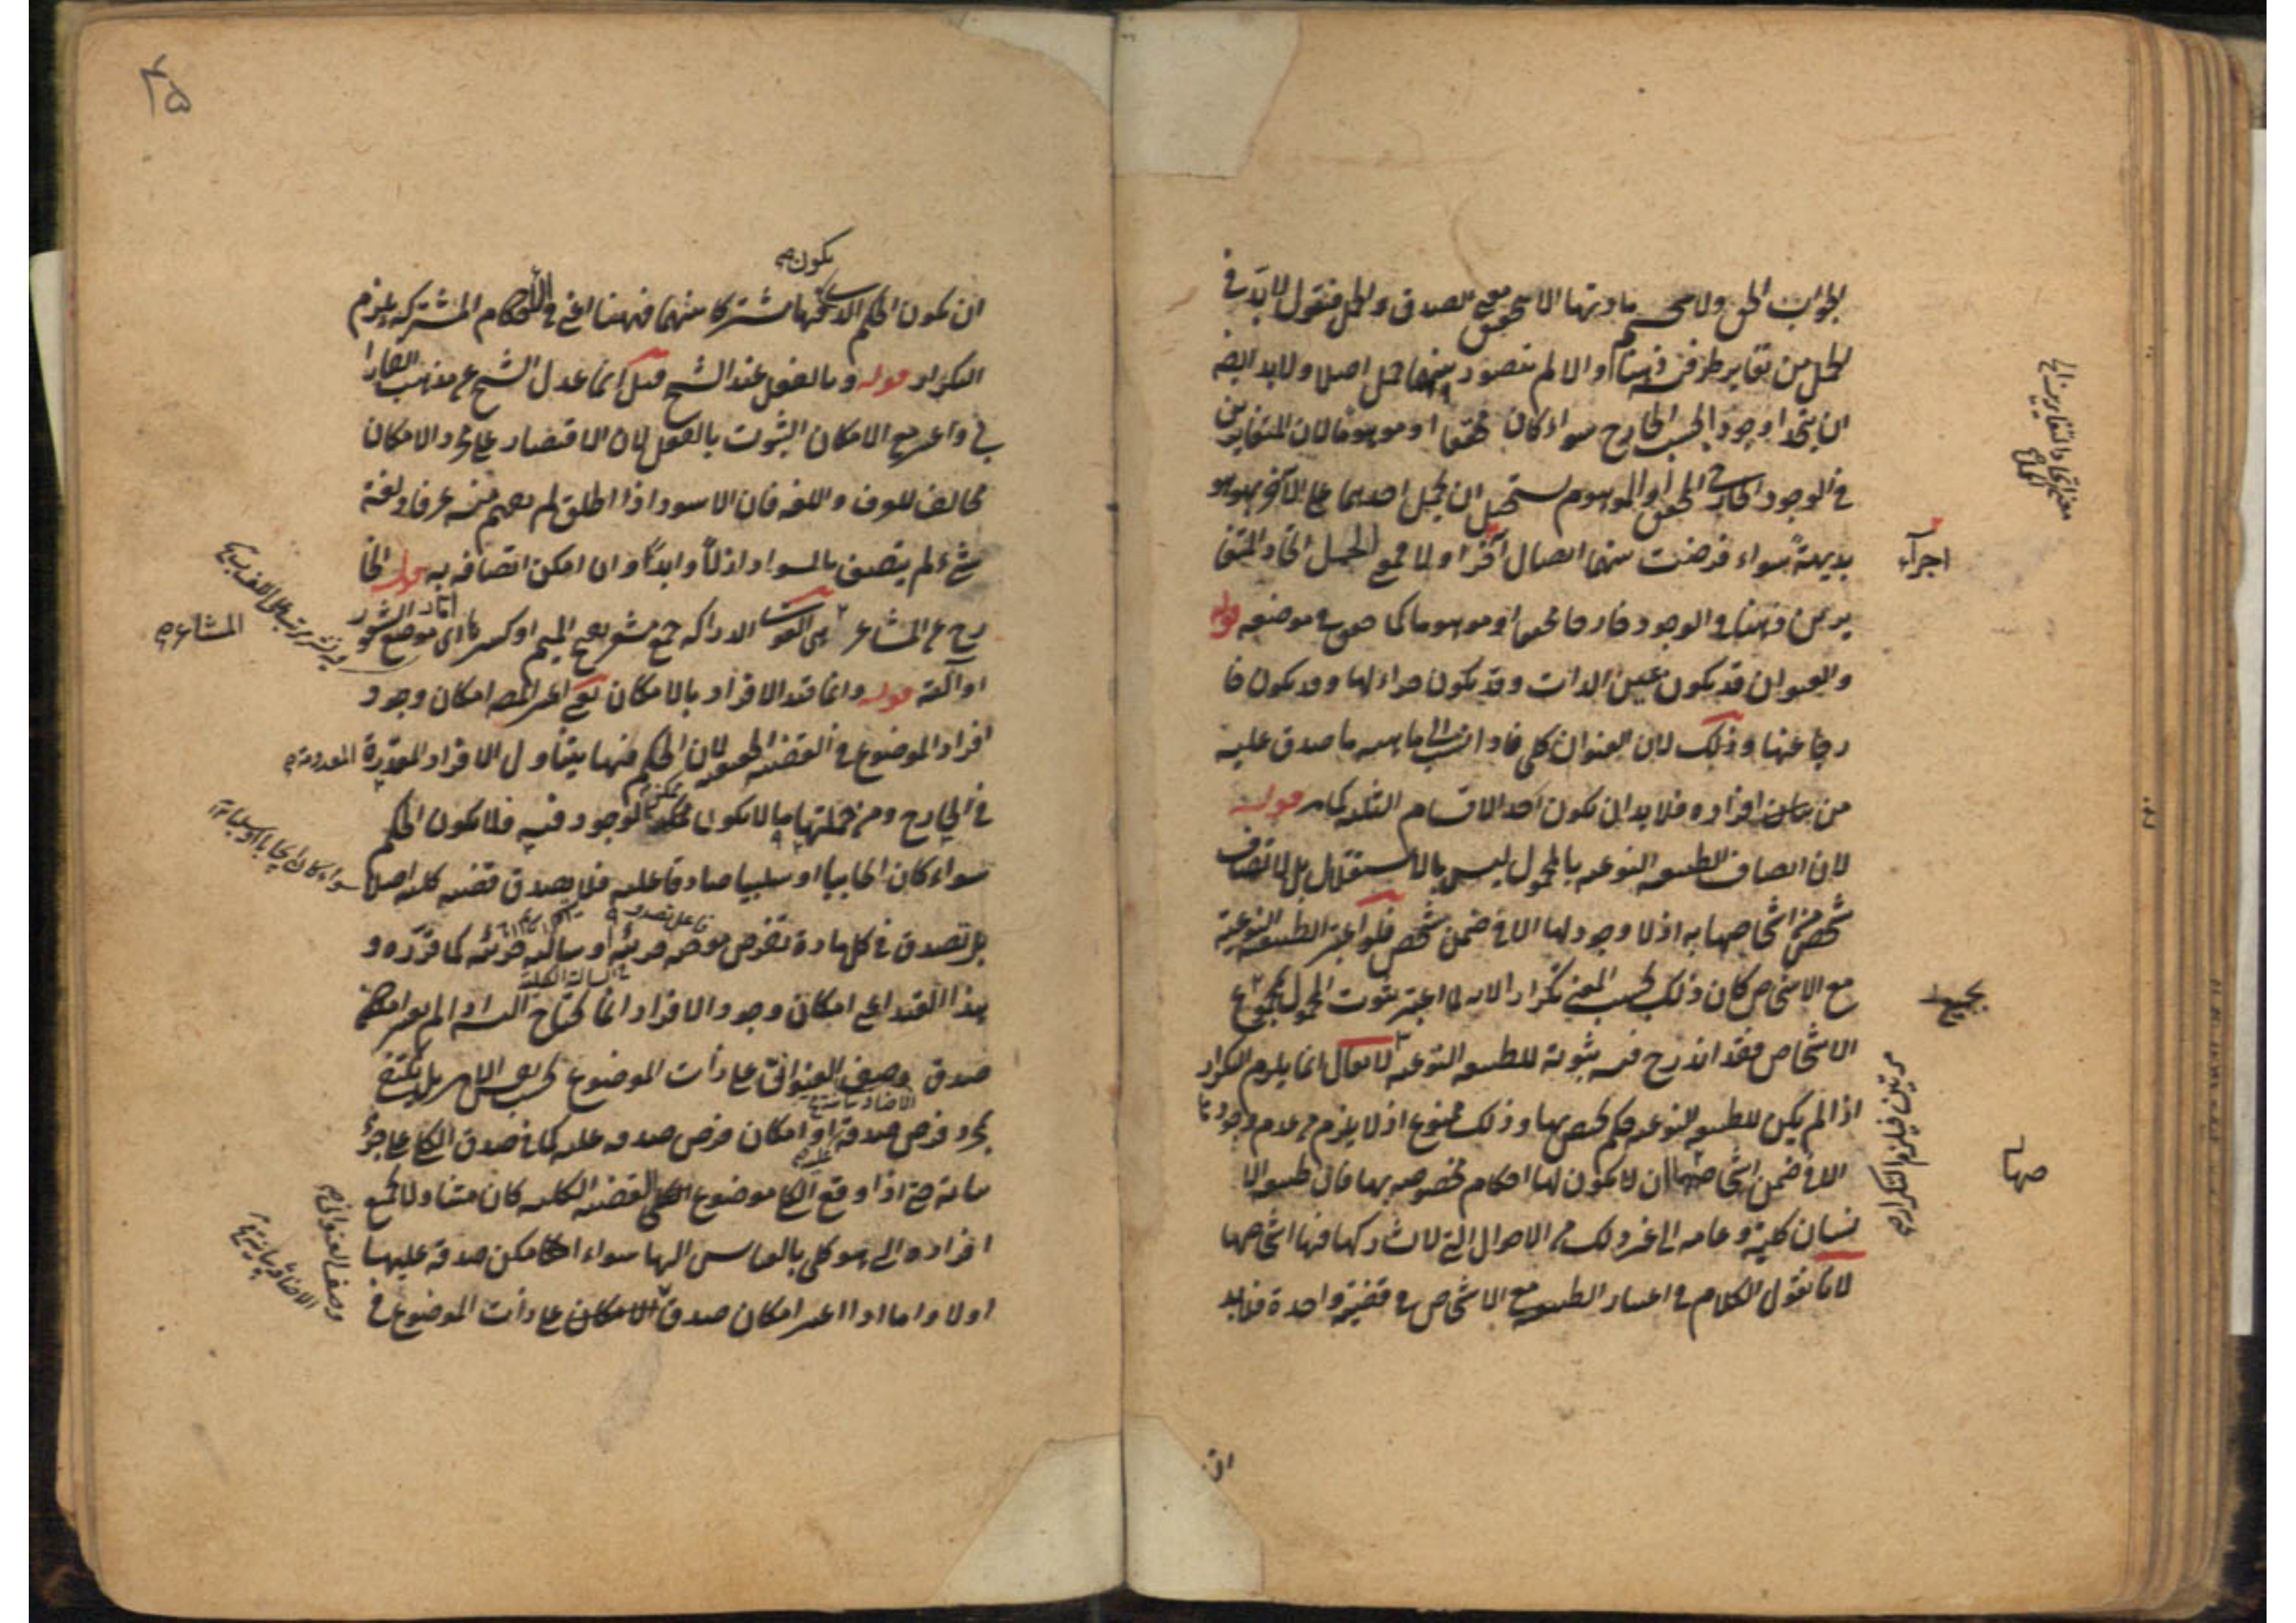 الجواب الحق ولا محيص مادتها الا بتحقيق معنى الصدق والحمل فنقول لا بد في
الحمل من تغاير طرفيه ذهنا والا لم يتصور بينهما حمل اصلا ولا بد ايضا
ان يتحدا وجودا بحسب الخارج سواء كان محققا او موهوما لان المتغايرين
في الوجود الخارجي المحقق او الموهوم يستحيل ان يحمل احدهما على الآخر بهو هو
بديهة سواء فرضت بينهما اتصال آخر اولا فمعنى الحمل اتحاد المتغا
يرين ذهنا في الوجود خارجا محققا او موهوما كما حقق في موضعه قوله
والعنوان قد يكون عين الذات وقد يكون جزءا لها وقد يكون خا
رجا عنها وذلك لان العنوان كلي فاذا نسب الى ماهية ما صدق عليه
من افراده فلا بد ان يكون احد الاقسام الثلثة كما مر قوله
لان اتصاف الطبيعة النوعية بالمحمول ليس بالاستقلال بل لاتصاف
شخص من اشخاصها به اذ لا وجود لها الا في ضمن شخص فلو اعتبر الطبيعة النوعية
مع الاشخاص كان ذلك بحسب المعنى تكرارا لانه لما اعتبر ثبوت المحمول لمجموع
الاشخاص فقد اندرج فيه ثبوته للطبيعة النوعية لا يقال انما يلزم التكرار
اذا لم يكن للطبيعة النوعية حكم يختص بها وذلك ممنوع اذ لا يلزم من عدم وجودها
الا في ضمن اشخاصها ان لا يكون لها احكام مخصوصة بها فان طبيعة الا
نسان كلية وعامة الى غير ذلك من الاحوال التي لا تشاركها فيها اشخاصها
لانا نقول الكلام في اعتبار الطبيعة مع الاشخاص في قضية واحدة فلا بد
اجزاء
بجميع
صها
مرتين فيلزم التكرار صح
۴۵
يكون صح
ان يكون الحكم الذي فيها مشتركا بينهما فههنا اعني في الاحكام المشتركة يلزم
التكرار قوله وبالفعل عند الشيخ قيل انما عدل الشيخ عن مذهب الفارا
بي واعتبر مع الامكان الثبوت بالفعل لان الاقتصار على مجرد الامكان
مخالف للعرف واللغة فان الاسود اذا اطلق لم يفهم منه عرفا ولغة
شيء لم يتصف بالسواد ازلا وابدا وان امكن اتصافه به قوله الخا
رج عن المشاعر هي القوى الدراكة جمع مشعر بفتح الميم او كسرها اي موضع الشعور
او آلته قوله وانما قيد الافراد بالامكان يعني اعتبر المص امكان وجود
افراد الموضوع في القضية الحقيقية لان الحكم فيها يتناول الافراد المقدرة المعدومة صح
في الخارج ومن جملتها ما لا يكون ممكن الوجود فيه فلا يكون الحكم
سواء كان ايجابيا او سلبيا صادقا عليه فلا يصدق قضية كلية اصلا
بل تصدق في كل مادة تفرض موجبة جزئية او سالبة جزئية كما قرره و
هذا القيد اعني امكان وجود الافراد انما يحتاج اليه اذا لم يعتبر امكان
صدق وصف العنواني على ذات الموضوع بحسب نفس الامر بل يكتفى
بمجرد فرض صدقه او امكان فرض صدقه عليه كما في صدق الكلي على جزئيا
ته حتى اذا وقع الكلي موضوع القضية الكلية كان متناولا لجميع
افراده التي هو كلي بالقياس اليها سواء امكن صدقه عليها
اولا واما اذا اعتبر امكان صدق على ذات الموضوع في
المشاعر صح
وصف العنواني صح